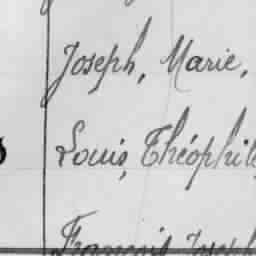 Joseph, Marie,
Louis, Théophile
François Joseph